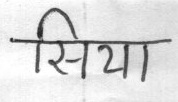 सिया